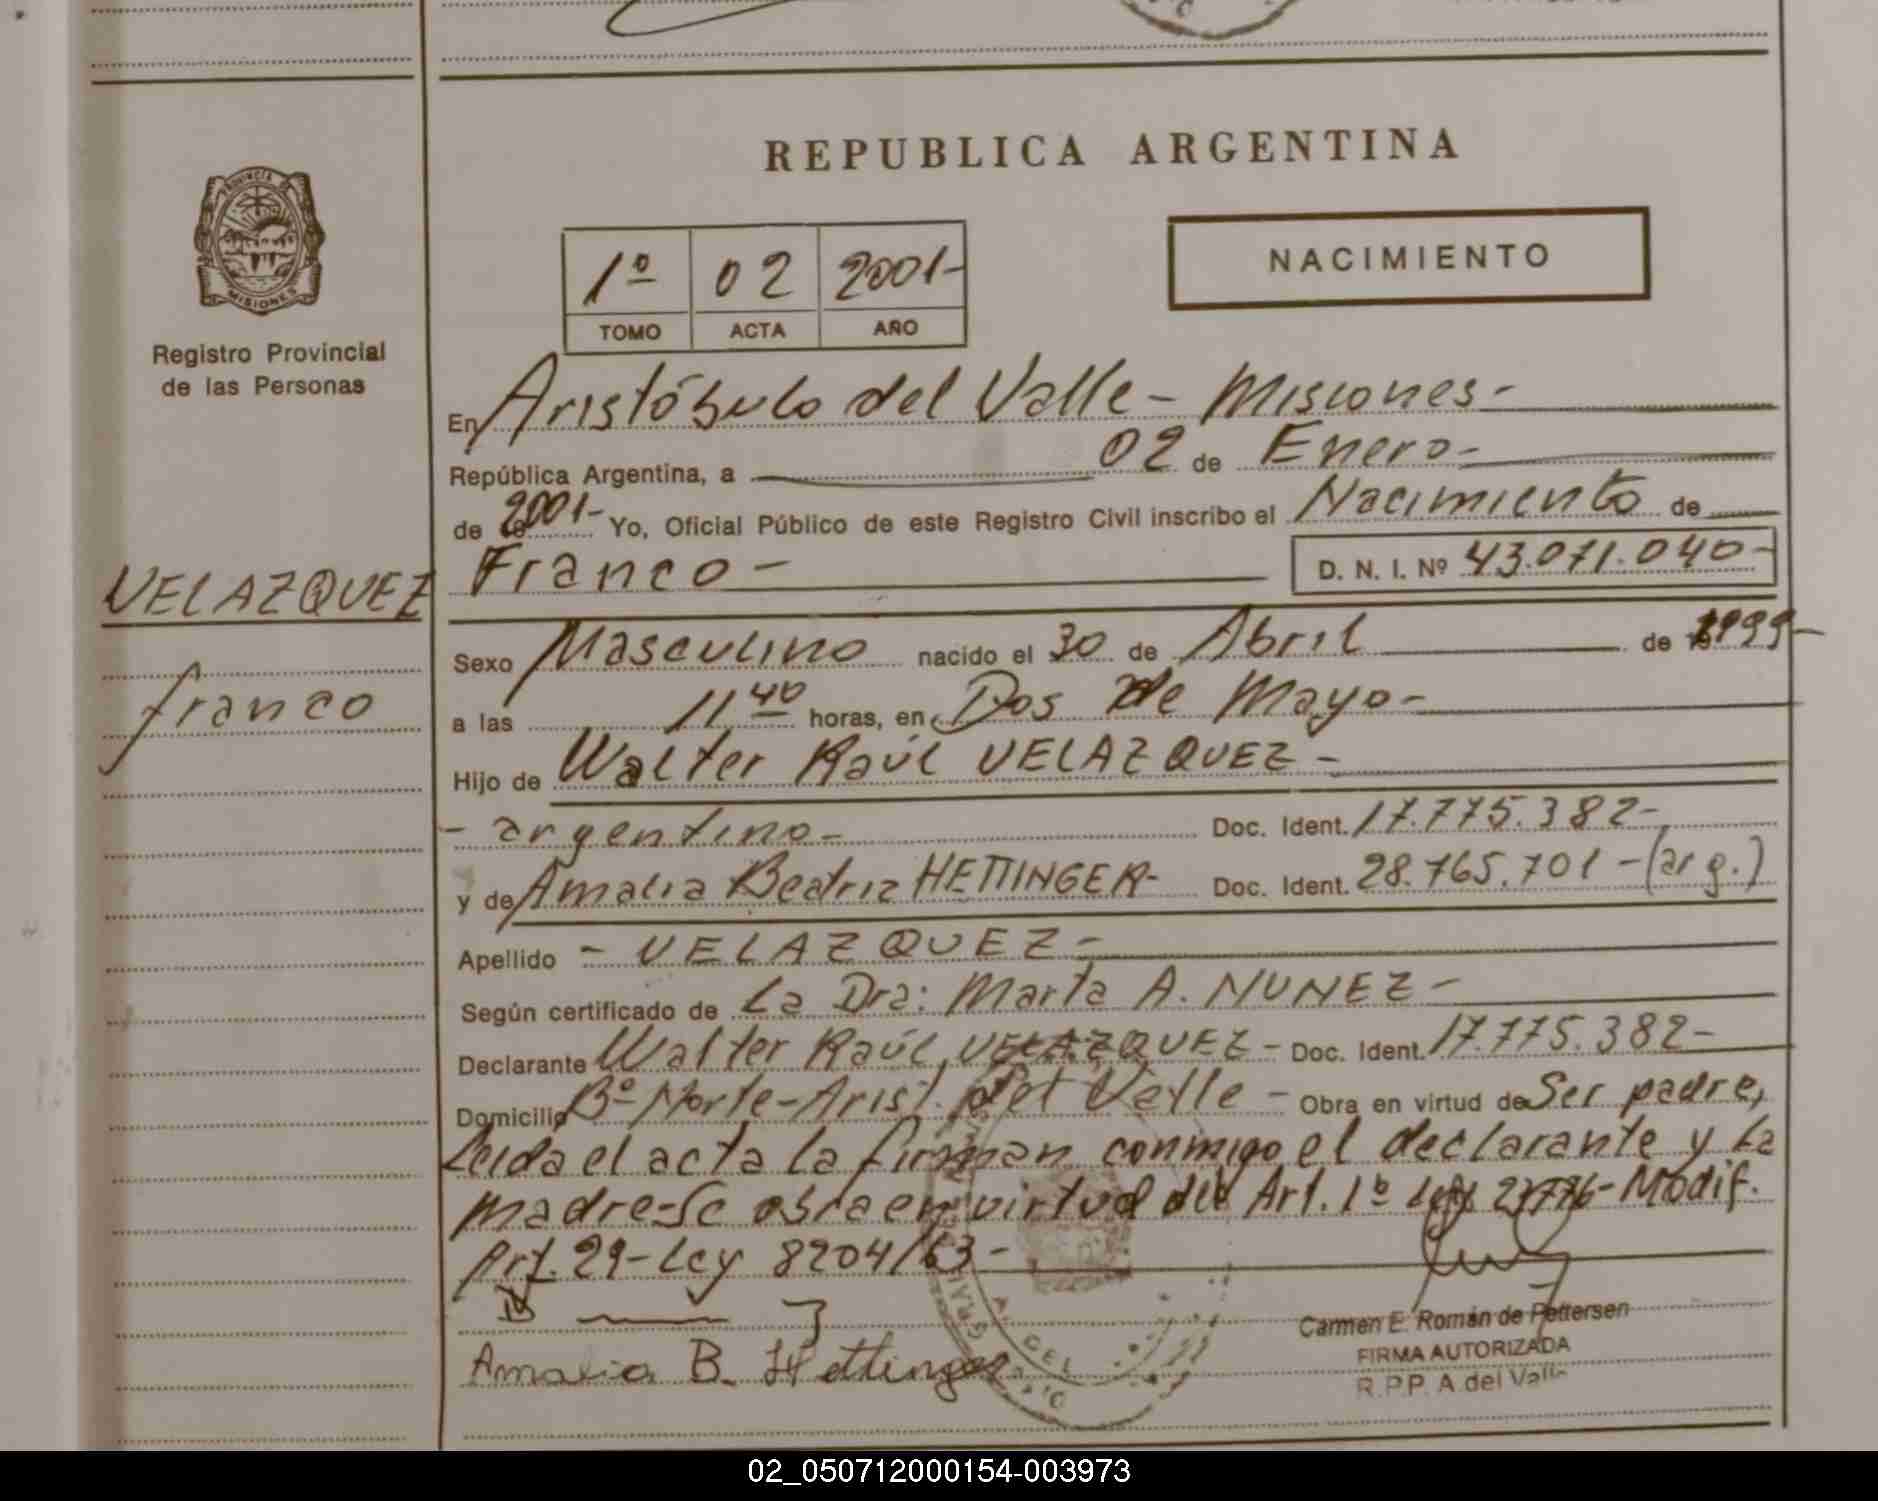 REPUBLICA ARGENTINA
PROVINCIA DE
MISIONES
Registro Provincial
de las Personas
1º 02 2001-
TOMO ACTA AÑO
NACIMIENTO
En Aristóbulo del Valle - Misiones -
República Argentina, a 02 de Enero -
de 2001- Yo, Oficial Público de este Registro Civil inscribo el Nacimiento de
VELAZQUEZ
Franco
Franco -
D. N. I. Nº 43.071.040-
Sexo Masculino nacido el 30 de Abril de 1999-
a las 11 40 horas, en Dos de Mayo -
Hijo de Walter Raúl VELAZQUEZ -
- argentino - Doc. Ident. 17.775.382-
y de Amalia Beatriz HETTINGER - Doc. Ident. 28.765.701 - (arg.)
Apellido - VELAZQUEZ -
Según certificado de La Dra: Marta A. NUNEZ -
Declarante Walter Raúl VELAZQUEZ - Doc. Ident. 17.775.382-
Domicilio Bº Norte - Arist. del Valle - Obra en virtud de Ser padre,
Leida el acta la firman conmigo el declarante y la
madre - Se obra en virtud del Art. 1º Ley Modif.
Art. 29 - Ley 8204/63 -
Amalia B. Hettinger
A. DEL
Carmen E. Román de Pettersen
FIRMA AUTORIZADA
R.P.P. A. del Valle
02_050712000154-003973